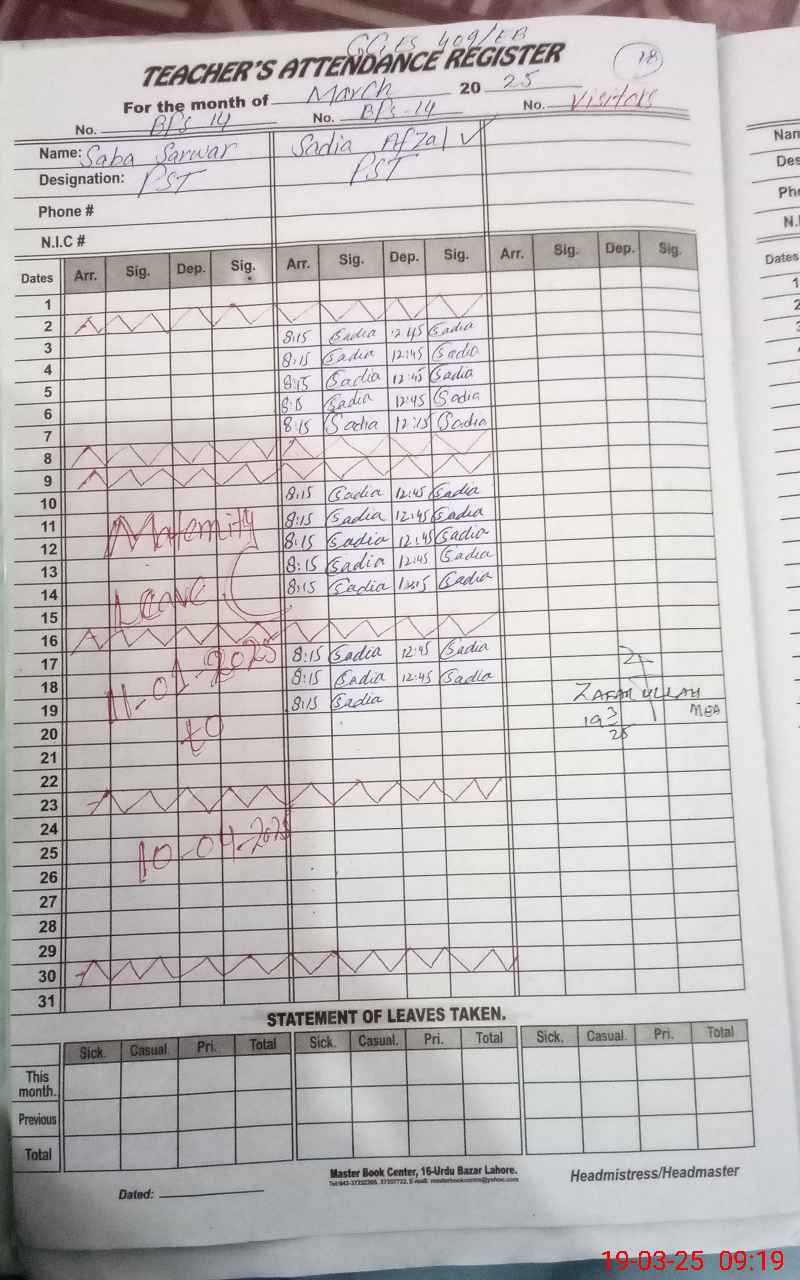 GGES 409/EB
TEACHER'S ATTENDANCE REGISTER
18
For the month of March 2025
No. BPS 14 No. BPS-14 No. Visitors
Name: Saba Sarwar Sadia Afzal ✓
Designation: PST PST
Phone #
N.I.C #
Dates Arr. Sig. Dep. Sig. Arr. Sig. Dep. Sig. Arr. Sig. Dep. Sig.
1
2
3 8:15 Sadia 12:45 Sadia
4 8:15 Sadia 12:45 Sadia
5 8:15 Sadia 12:45 Sadia
6 8:15 Sadia 12:45 Sadia
7 8:15 Sadia 12:15 Sadia
8
9
10 8:15 Sadia 12:45 Sadia
11 Maternity 8:15 Sadia 12:45 Sadia
12 8:15 Sadia 12:45 Sadia
13 8:15 Sadia 12:45 Sadia
14 Leave 8:15 Sadia 12:15 Sadia
15
16
17 11-01-2025 8:15 Sadia 12:45 Sadia
18 8:15 Sadia 12:45 Sadia ZAFAR ULLAH
19 8:15 Sadia MEA
20 to 19 3 25
21
22
23
24
25 10-04-2025
26
27
28
29
30
31
STATEMENT OF LEAVES TAKEN.
Sick. Casual. Pri. Total Sick. Casual. Pri. Total Sick. Casual. Pri. Total
This month.
Previous
Total
Master Book Center, 16-Urdu Bazar Lahore.
Dated: Headmistress/Headmaster
Name
Des
Ph
N.I
Dates
1
2
3
19-03-25 09:19